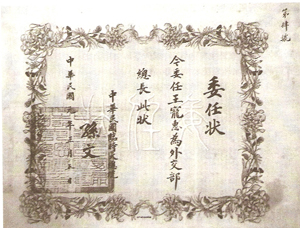 第肆號
委任状
令委任王寵惠為外交部
總長此狀
中華民國
孫文
中華民國元年